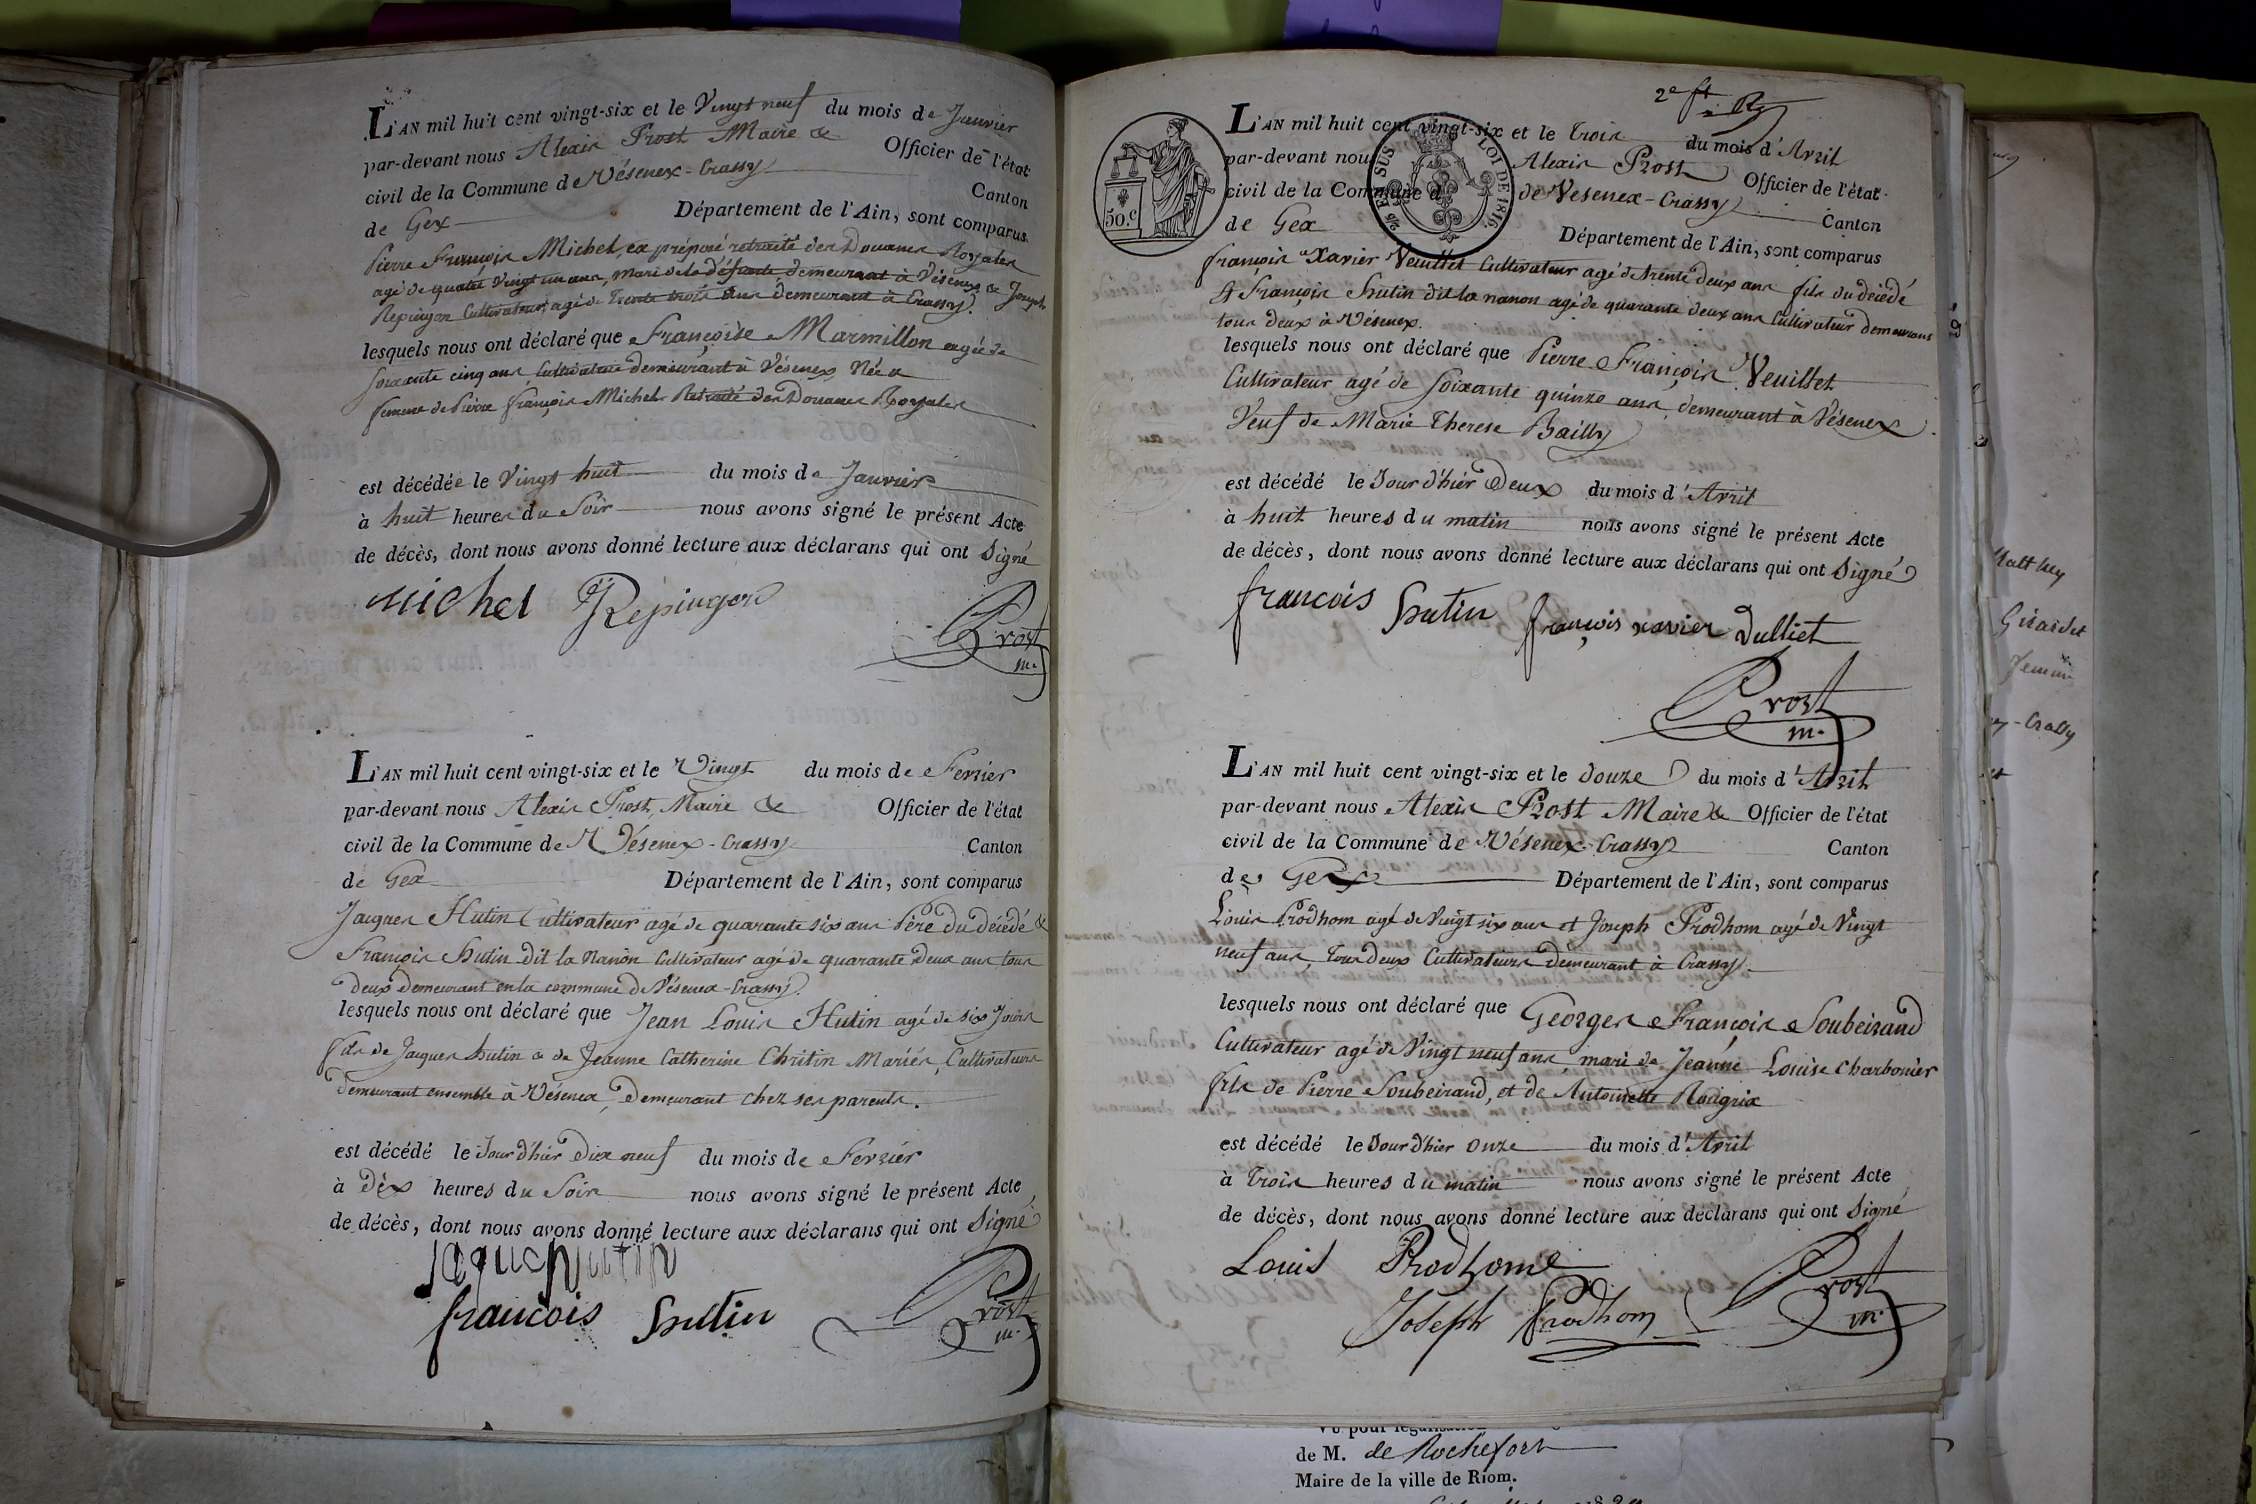 L'AN mil huit cent vingt-six et le Vingt neuf du mois de Janvier
par-devant nous Alexis Prost Maire & Officier de l'état
civil de la Commune de Vésenex-Crassy Canton
de Gex Département de l'Ain, sont comparus
Pierre François Michel, ex préposé retraité des Douanes Royales
agé de quatre Vingt un ans, mari de la défunte demeurant à Vésenex & Joseph
Repingon Cultivateur, agé de Trente trois ans demeurant à Crassy.
lesquels nous ont déclaré que Françoise Marmillon agée de
soixante cinq ans, Cultivatrice demeurant à Vésenex Née
femme de Pierre François Michel Retraité des Douanes Royales
est décédée le Vingt huit du mois de Janvier
à huit heures du Soir nous avons signé le présent Acte
de décès, dont nous avons donné lecture aux déclarans qui ont Signé
Michel JRepingon Prost m.
L'AN mil huit cent vingt-six et le Vingt du mois de Fevrier
par-devant nous Alexis Prost, Maire & Officier de l'état
civil de la Commune de Vésenex-Crassy Canton
de Gex Département de l'Ain, sont comparus
Jacques Hutin Cultivateur agé de quarante six ans Père du décédé &
François Hutin Dit la Nanon Cultivateur agé de quarante deux ans tous
deux demeurant en la commune de Vésenex-Crassy.
lesquels nous ont déclaré que Jean Louis Hutin agé de six Jours
fils de Jacques hutin & de Jeanne Catherine Christin Mariés, Cultivateurs
demeurant ensemble à Vésenex, demeurant chez ses parents.
est décédé le Jour d'hier Dix neuf du mois de Fevrier
à Dix heures du Soir nous avons signé le présent Acte
de décès, dont nous avons donné lecture aux déclarans qui ont Signé
jaque hutin
françois hutin Prost m.
2e ft
50.c
EN SUS LOI DE 1816.
L'AN mil huit cent vingt-six et le trois du mois d'Avril
par-devant nous Alexis Prost Officier de l'état
civil de la Commune de Vesenex-Crassy Canton
de Gex Département de l'Ain, sont comparus
françois Xavier Veuillet Cultivateur agé de trente deux ans fils du décédé
& François Hutin dit la nanon agé de quarante deux ans Cultivateur demeurans
tous deux à Vésenex.
lesquels nous ont déclaré que Pierre François Veuillet
Cultivateur agé de soixante quinze ans, demeurant à Vésenex
Veuf de Marie Therese Bailly
est décédé le Jour d'hier Deux du mois d'Avril
à huit heures du matin nous avons signé le présent Acte
de décès, dont nous avons donné lecture aux déclarans qui ont Signé
francois hutin françois xavier Vulliet
Prost m.
L'AN mil huit cent vingt-six et le douze du mois d'Avril
par-devant nous Alexis Prost Maire & Officier de l'état
civil de la Commune de Vésenex-Crassy Canton
de Gex Département de l'Ain, sont comparus
Louis Prodhom agé de Vingt six ans et Joseph Prodhom agé de Vingt
neuf ans, tous deux Cultivateurs Demeurant à Crassy.
lesquels nous ont déclaré que Georges François Soubeirand
Cultivateur agé de Vingt neuf ans, mari de Jeanne Louise Charbonier
fils de Pierre Soubeirand, et de Antoinette Rougrix
est décédé le Jour d'hier Onze du mois d'Avril
à trois heures du matin nous avons signé le présent Acte
de décès, dont nous avons donné lecture aux déclarans qui ont Signé
Louis Prodhome Prost m.
Joseph Prodhom
Girardet
-Crassy
de M. de Rochefort
Maire de la ville de Riom.